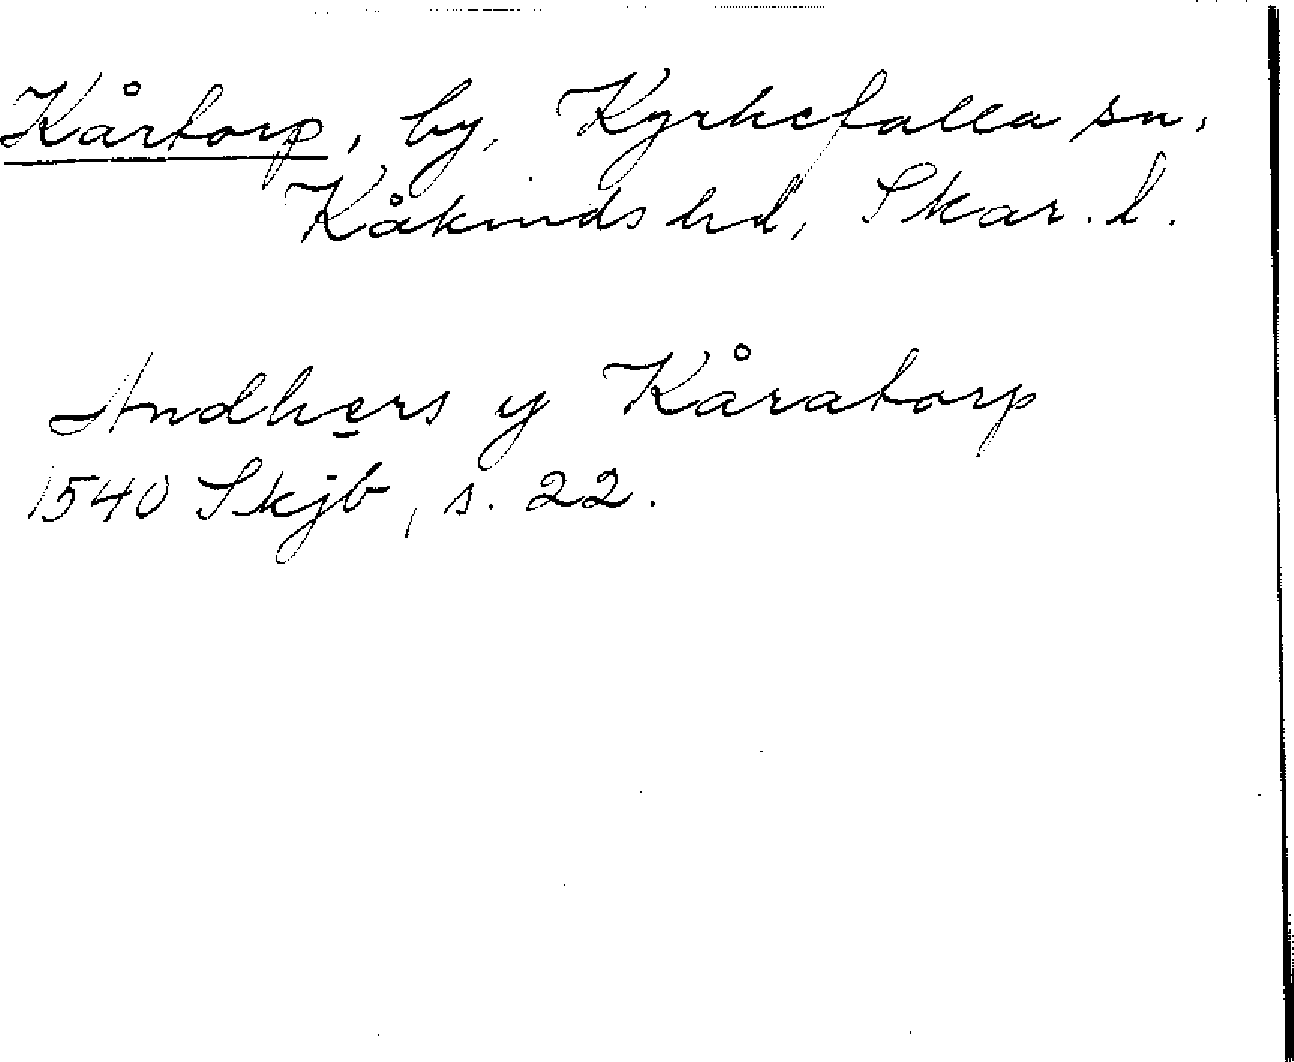 Kårtorp, by, Kyrkefalla sn,
Kåkinds hd, Skar. l.
Andhers y Kåratorp
1540 Skjb, s. 22.